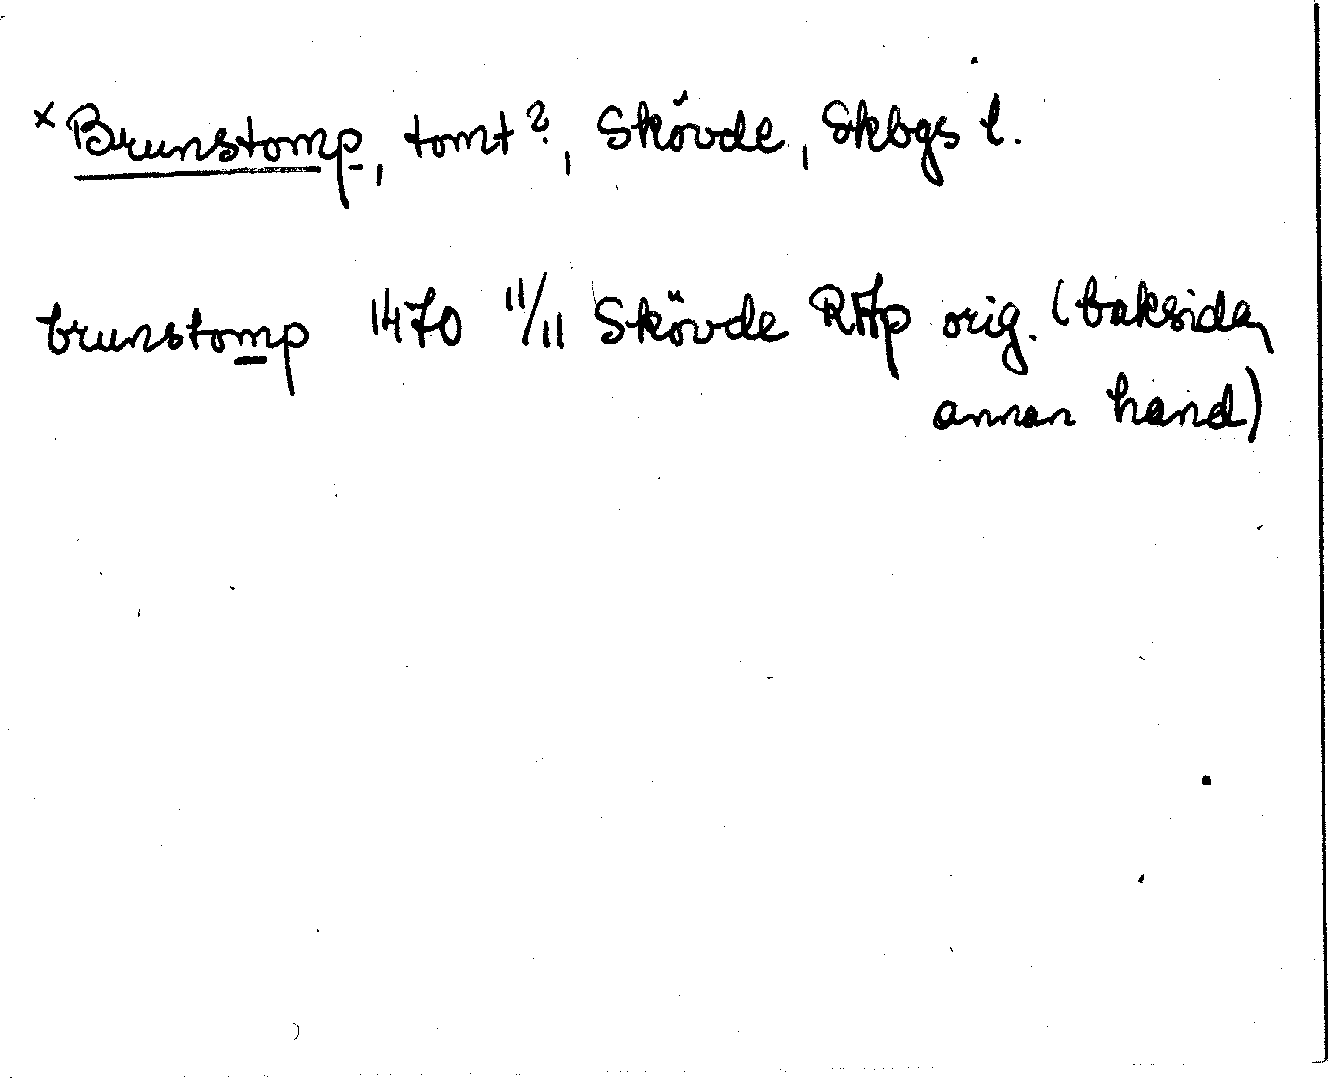 × Brunstomp, tomt?, Skövde, Skbgs l.
brunstomp 1470 11/11 Skövde RAp orig. (baksida,
annan hand)